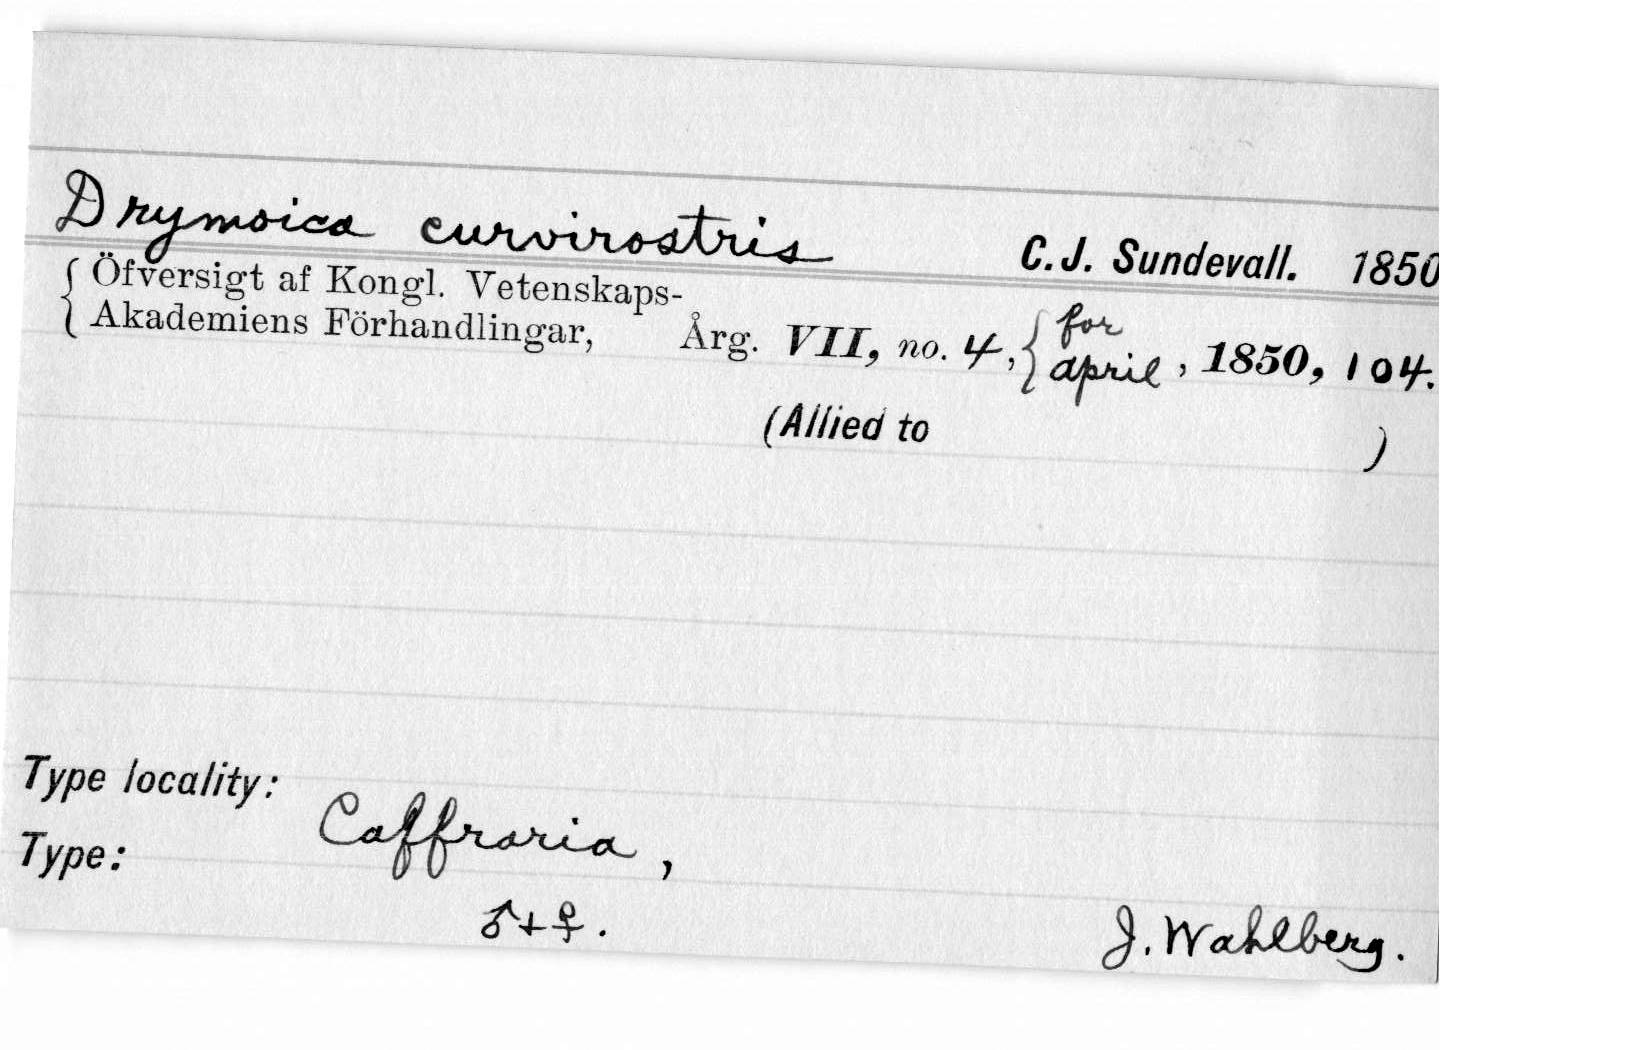 Drymoica curvirostris C.J. Sundevall. 1850
{ Öfversigt af Kongl. Vetenskaps-
Akademiens Förhandlingar, Årg. VII, no. 4, { for april, 1850, 104.
(Allied to )
Type locality:
Caffraria,
Type:
♂+♀. J. Wahlberg.